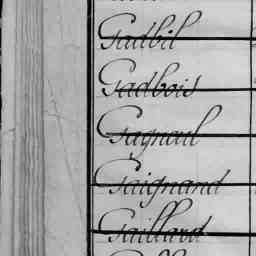 Gadbil
Gadbois
Gagneul
Gaignand
Gaillard